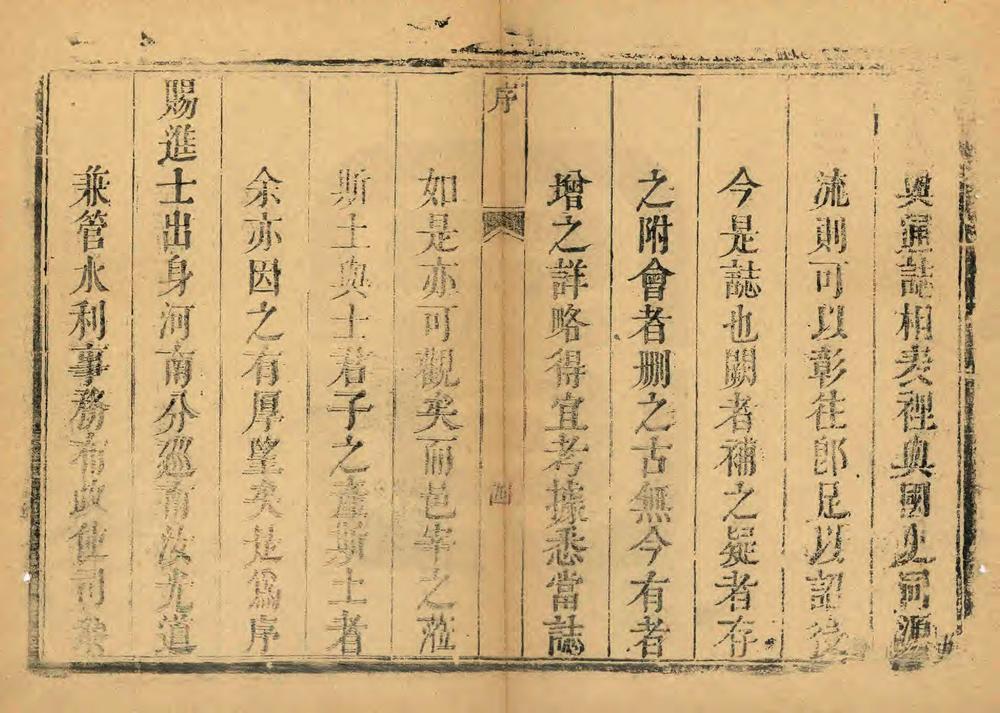 與通誌相表裡與國史同源
流則可以彰往卽足以詔後
今是誌也闕者補之疑者存
之附會者刪之古無今有者
增之詳略得宜考據悉當誌
序
四
如是亦可觀矣而邑宰之蒞
斯土與士君子之產斯土者
余亦因之有厚望矣是爲序
賜進士出身河南分巡南汝光道
兼管水利事務布政使司